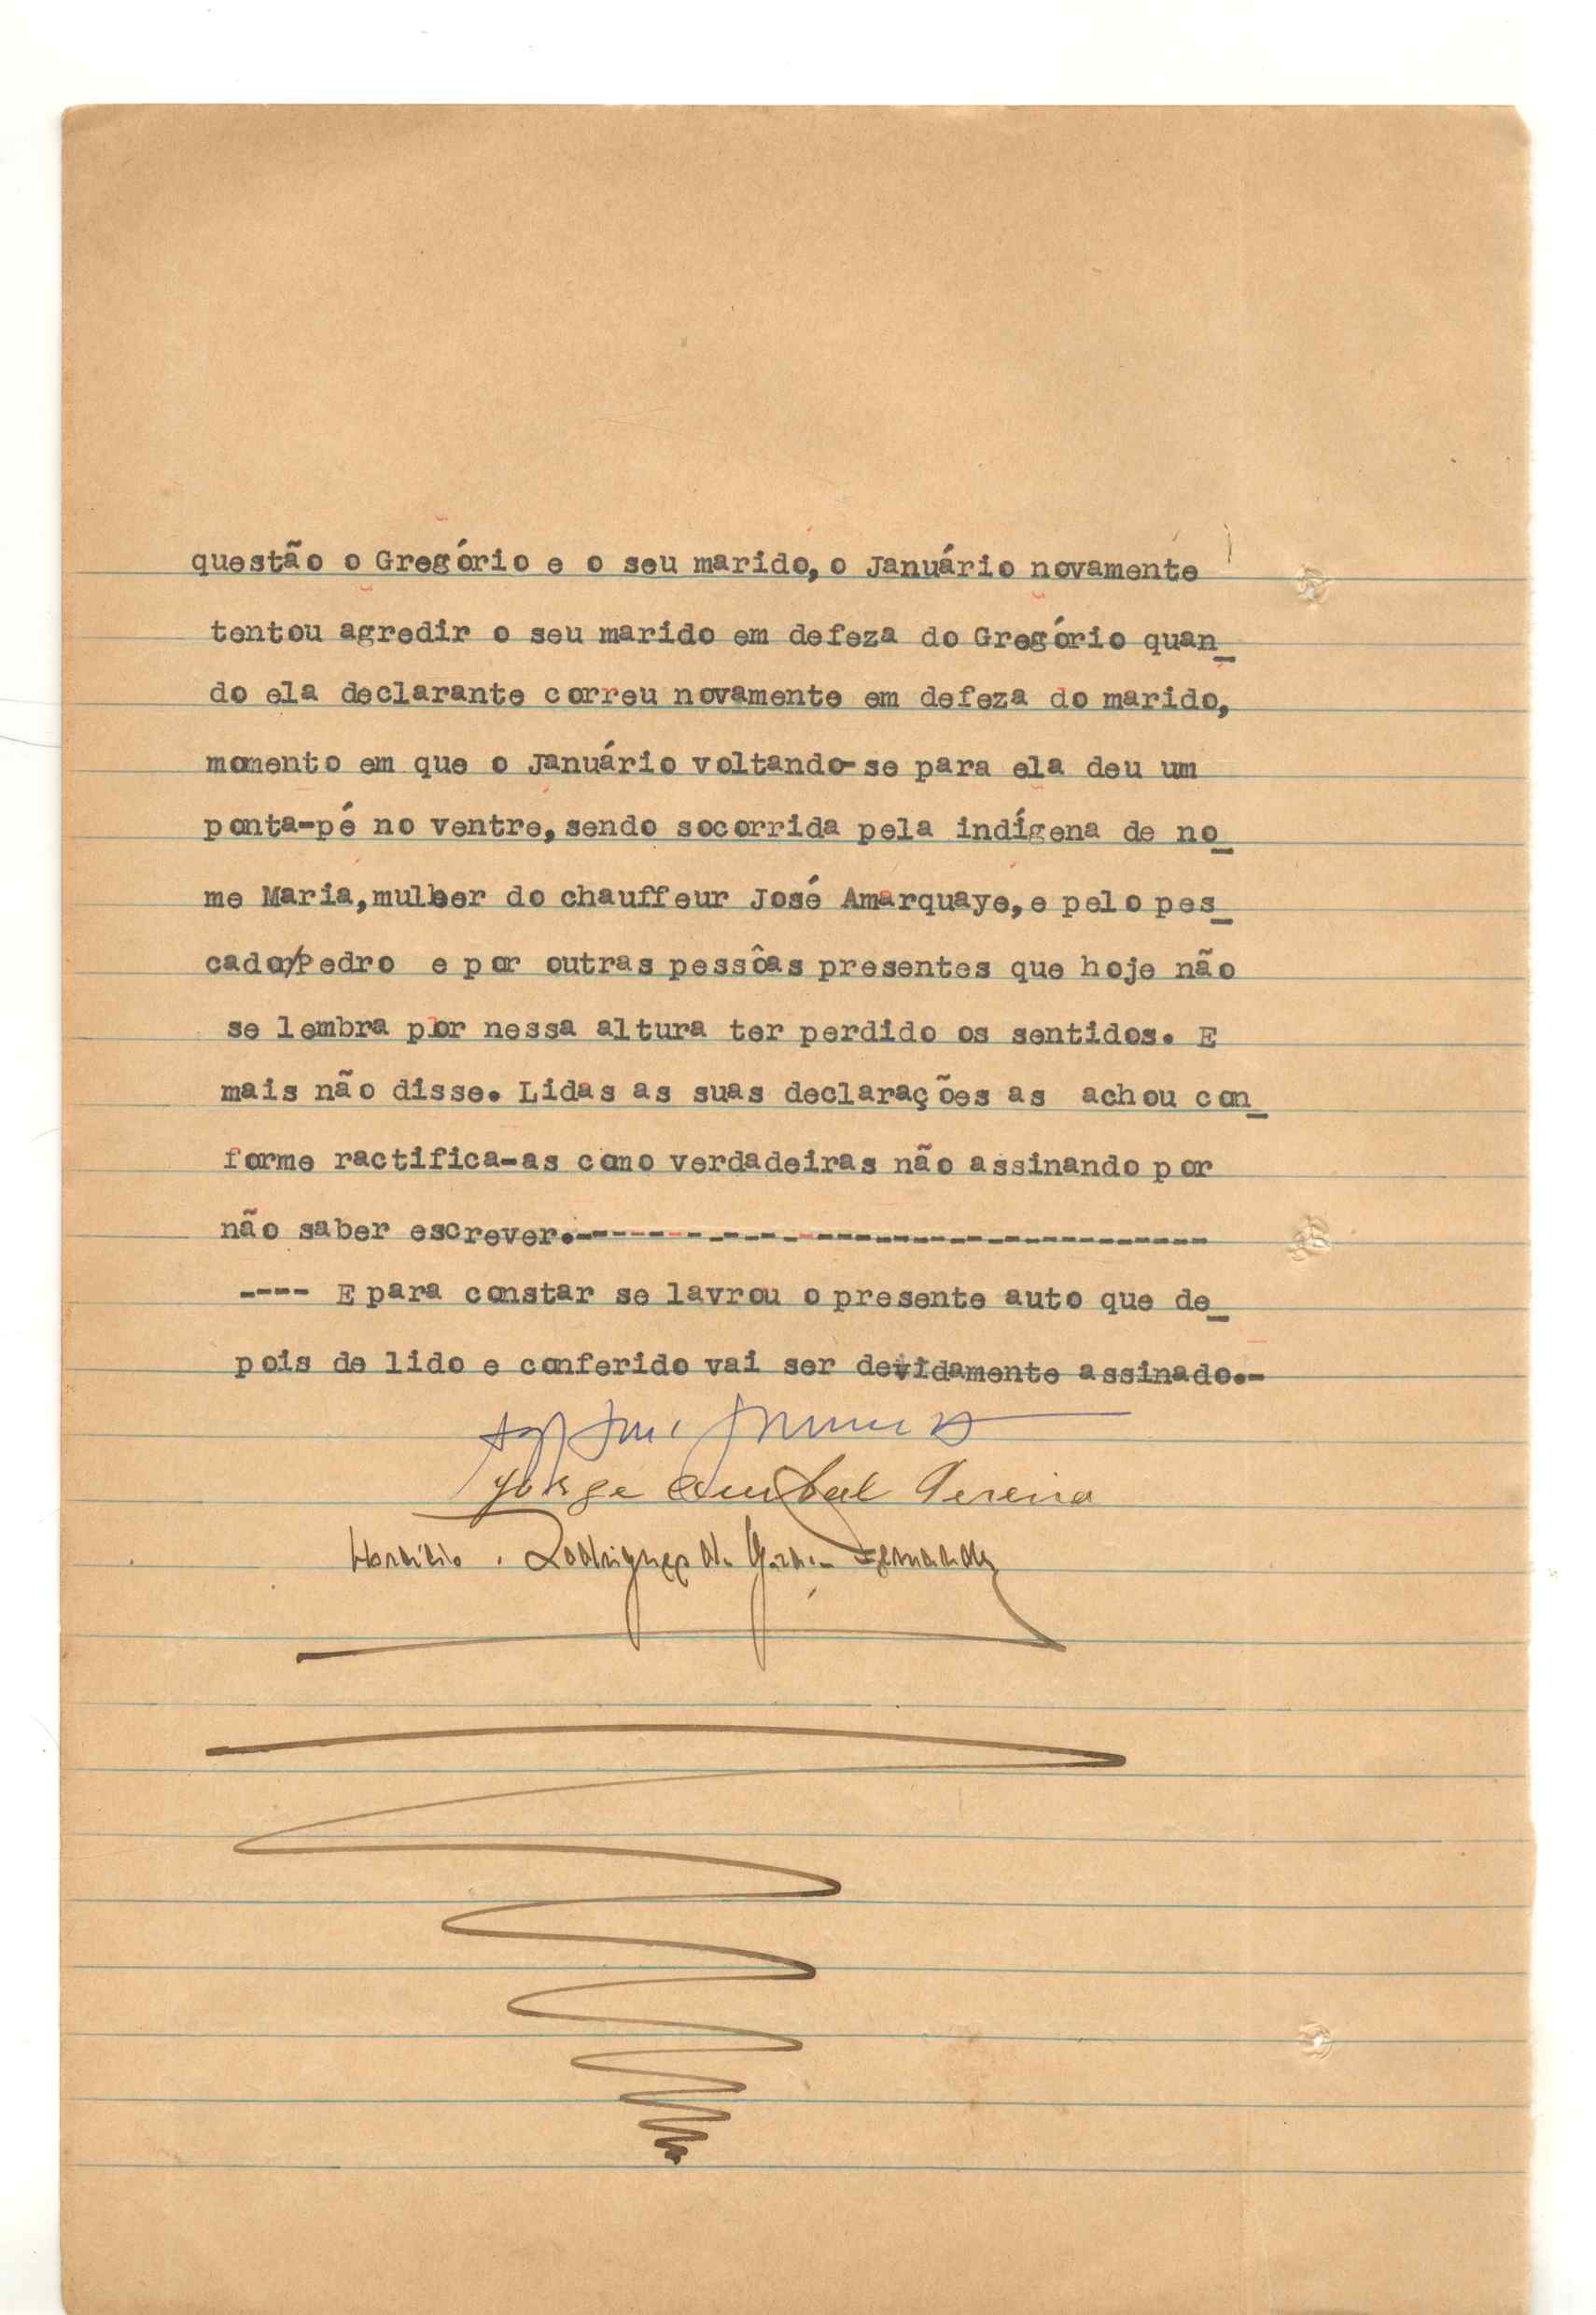 questão o Gregório e o seu marido, o Januário novamente
tentou agredir o seu marido em defeza do Gregório quan_
do ela declarante correu novamente em defeza do marido,
momento em que o Januário voltando-se para ela deu um
ponta-pé no ventre, sendo socorrida pela indígena de no_
me Maria, mulher do chauffeur José Amarquaye, e pelo pes_
cador/Pedro e por outras pessôas presentes que hoje não
se lembra por nessa altura ter perdido os sentidos. E
mais não disse. Lidas as suas declarações as achou con_
forme ractifica-as como verdadeiras não assinando por
não saber escrever.-----------------------------------
---- E para constar se lavrou o presente auto que de_
pois de lido e conferido vai ser devidamente assinado.-
Jorge Pereira
Horácio Rodrigues Fernandes